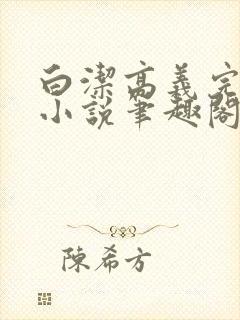 白潔高義完
小說筆趣閣
陳希方